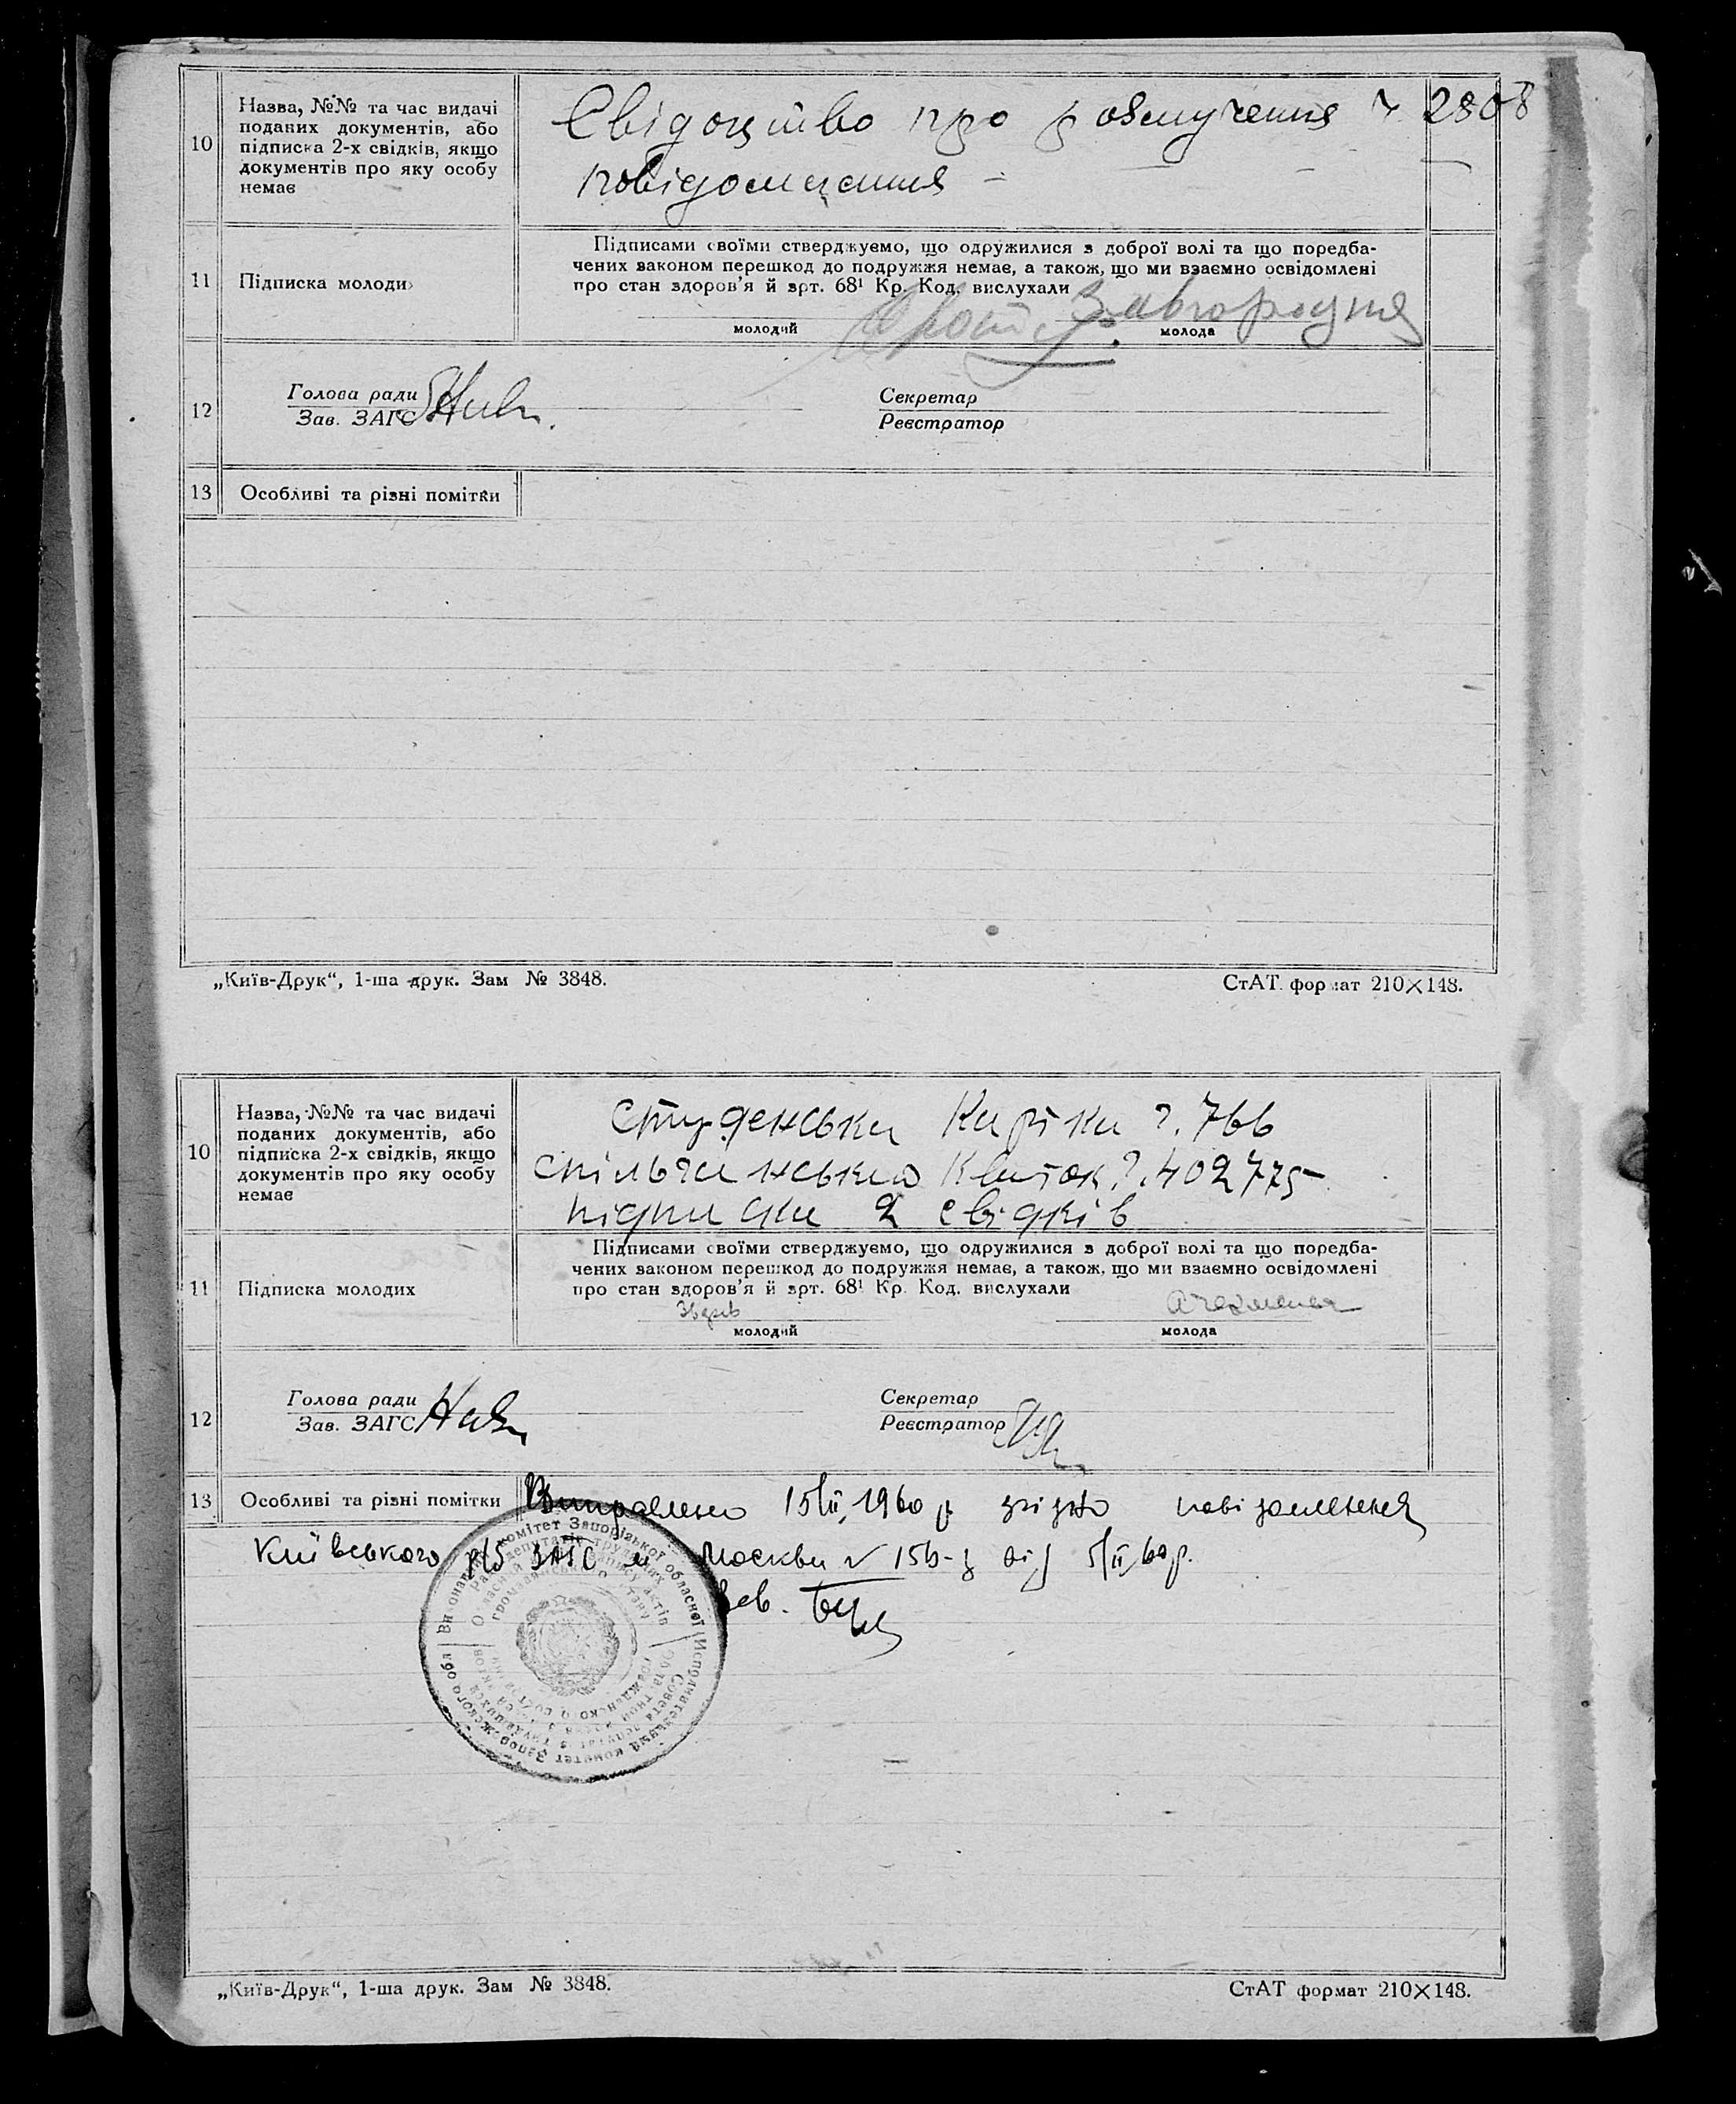 10
Назва, №№ та час видачі
поданих документів, або
підписка 2-х свідків, якщо
документів про яку особу
немає
Свідоцтво про розлучення ч 2808
повідомлення -
11
Підписка молоди
Підписами своїми стверджуємо, що одружилися з доброї волі та що передба-
чених законом перешкод до подружжя немає, а також, що ми взаємно освідомлені
про стан здоров'я й арт. 68¹ Кр. Код. вислухали
Завгородня
молодий
молода
12
Голова ради
Зав. ЗАГС
Секретар
Реєстратор
13
Особливі та різні помітки
„Київ-Друк“, 1-ша друк. Зам № 3848.
СтАТ. формат 210×148.
10
Назва, №№ та час видачі
поданих документів, або
підписка 2-х свідків, якщо
документів про яку особу
немає
студенська картка ч. 766
спільчанський квиток ч. 402775
підписки 2 свідків
11
Підписка молодих
Підписами своїми стверджуємо, що одружилися з доброї волі та що передба-
чених законом перешкод до подружжя немає, а також, що ми взаємно освідомлені
про стан здоров'я й арт. 68¹ Кр. Код. вислухали
молодий
молода
12
Голова ради
Зав. ЗАГС
Секретар
Реєстратор
13
Особливі та різні помітки
Виправлено 15/II, 1960 р. згідно повідомлення
Київського р/б ЗАГС м Москви № 156-з від 5/II, 60 р.
Зав.
Виконавчий комітет Запорізької обласної
Ради депутатів трудящих
„Київ-Друк“, 1-ша друк. Зам № 3848.
СтАТ формат 210×148.